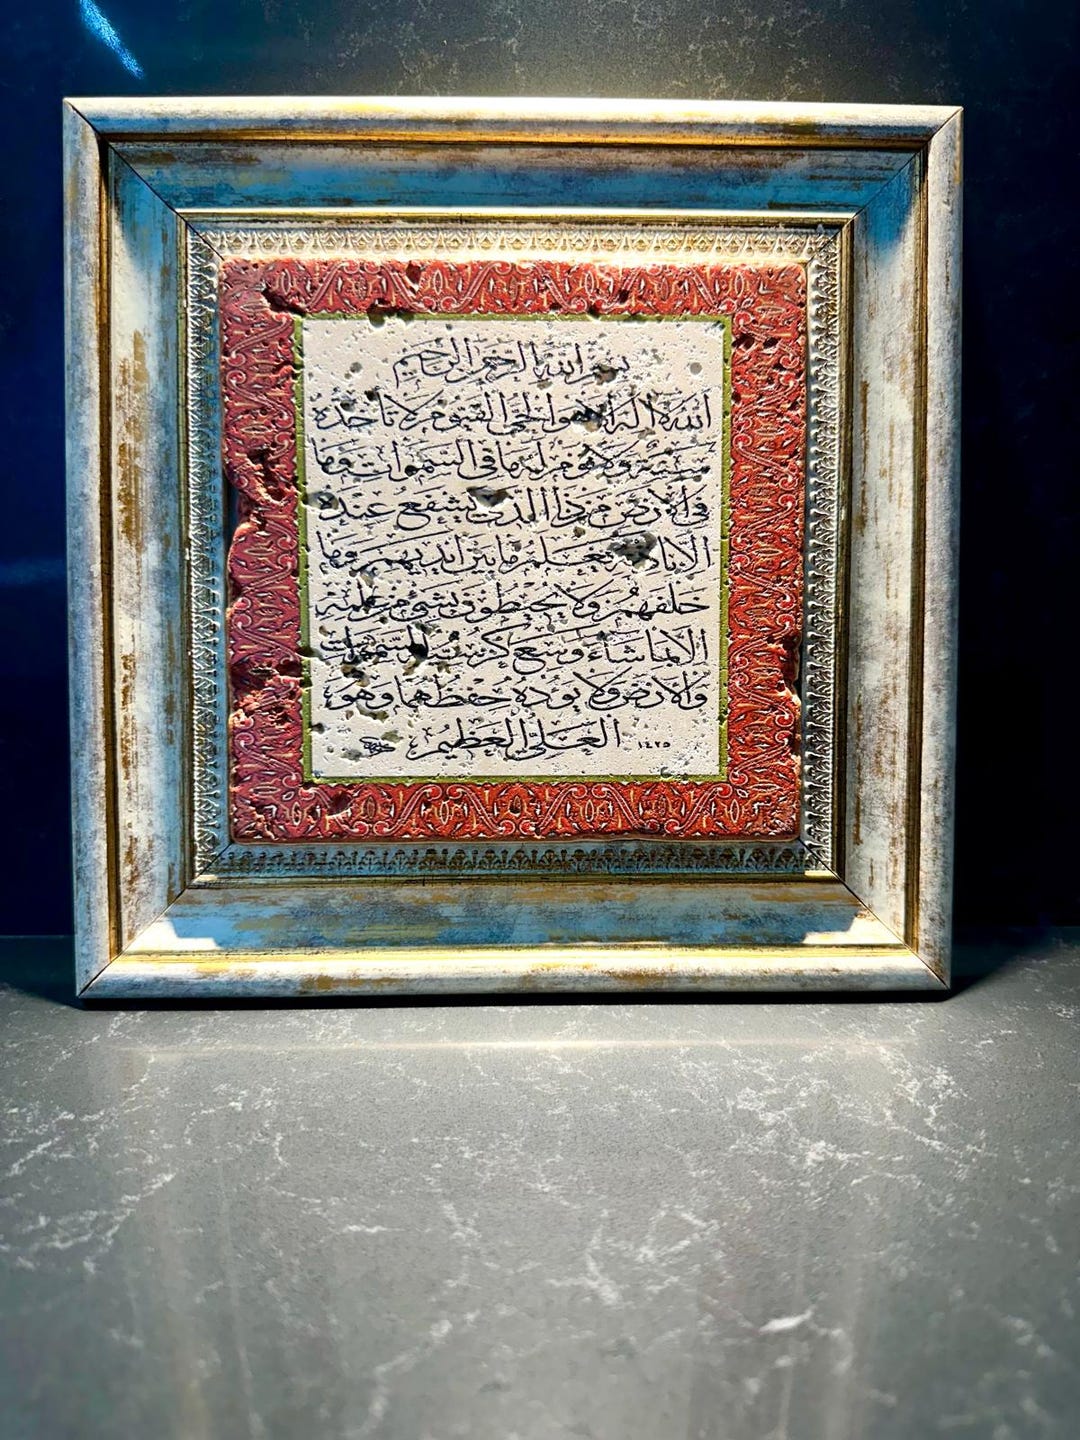 بسم الله الرحمن الرحيم
الله لا اله الا هو الحي القيوم لا تأخذه
سنة ولا نوم له ما في السموات وما
في الارض من ذا الذي يشفع عنده
الا باذنه يعلم ما بين ايديهم وما
خلفهم ولا يحيطون بشئ من علمه
الا بما شاء وسع كرسيه السموات
والارض ولا يؤده حفظهما وهو
العلي العظيم ١٤٢٥